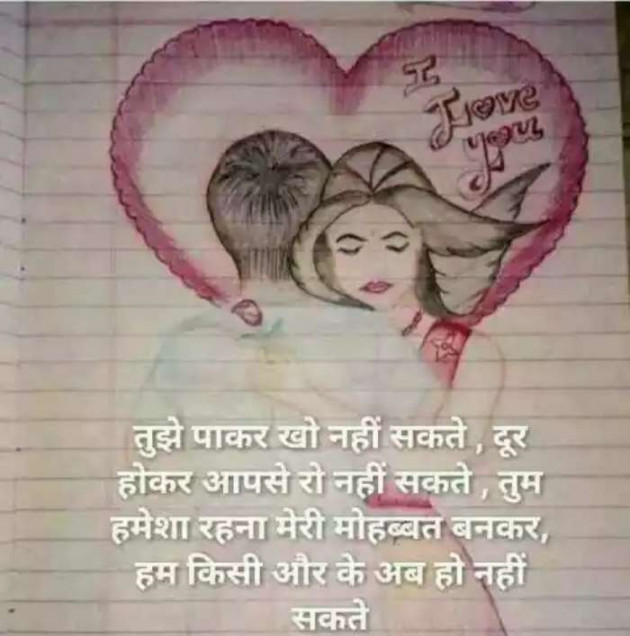 I
Love
you
तुझे पाकर खो नहीं सकते , दूर
होकर आपसे रो नहीं सकते , तुम
हमेशा रहना मेरी मोहब्बत बनकर,
हम किसी और के अब हो नहीं
सकते